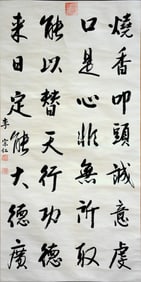 燒香叩頭誠意虔
口是心非無所取
能以替天行功德
來日定能大德廣
李宗仁